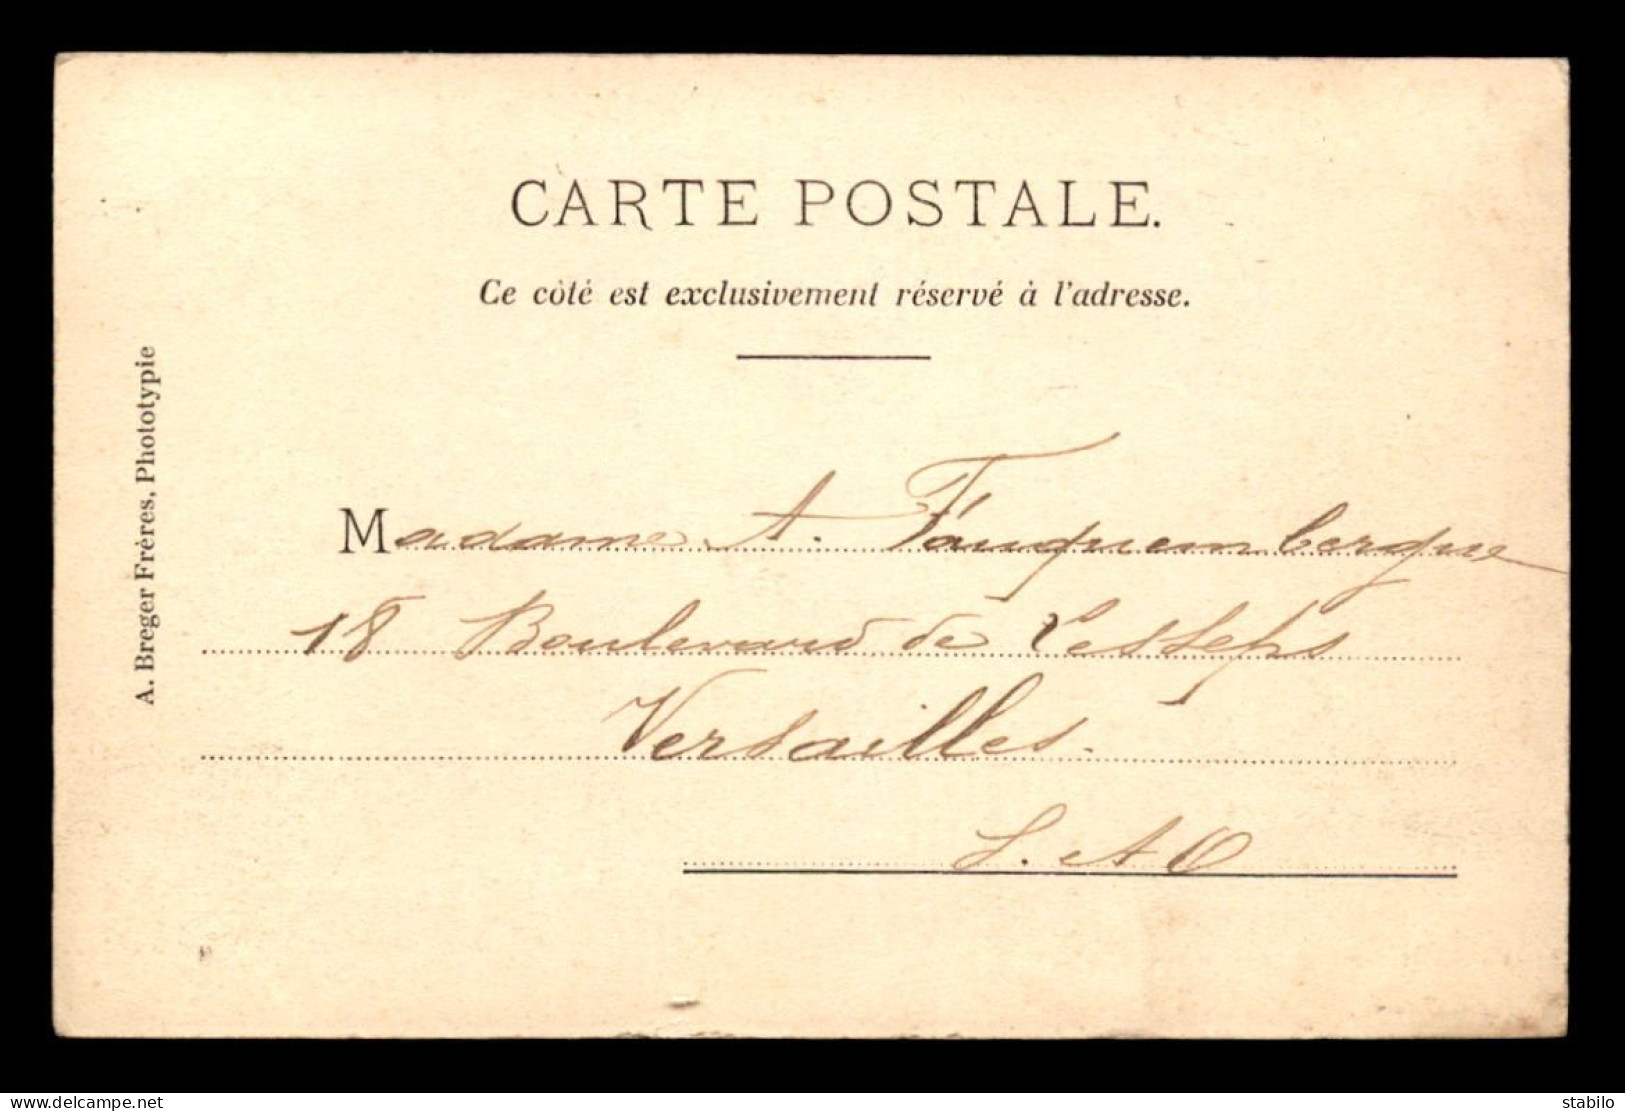 CARTE POSTALE.
Ce côté est exclusivement réservé à l'adresse.
A. Breger Frères, Phototypie
Madame A. Fauquembergue
18 Boulevard de Lesseps
Versailles.
S. et O
delcampe.net
stabilo